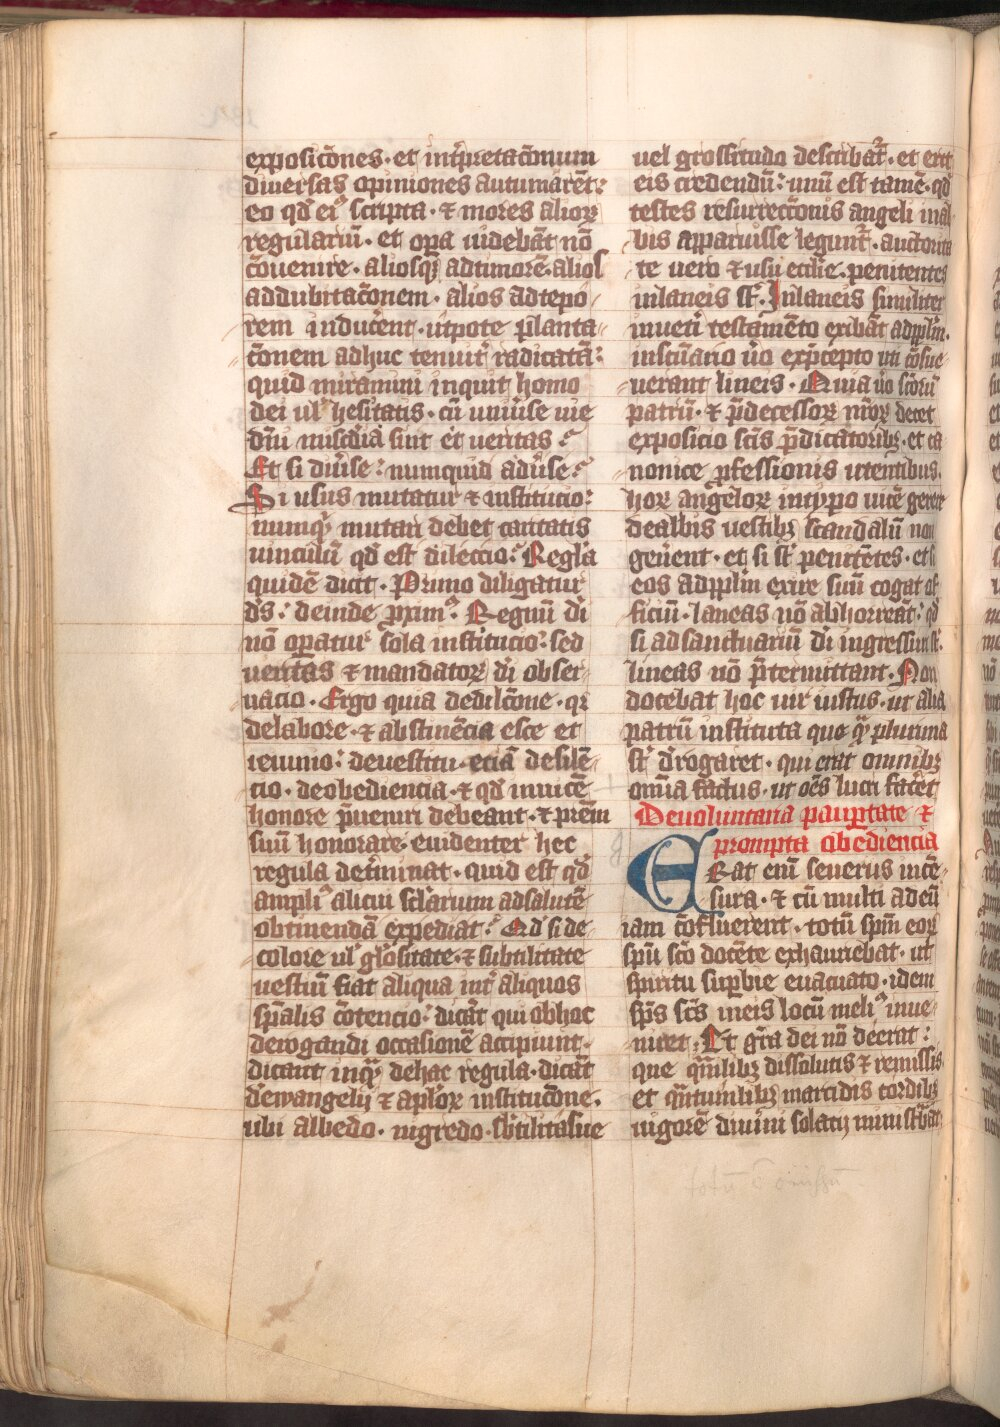 exposicōnes · et int̄p̄tacōnum
diuersas opiniones autumarēt :
eo qd̄ eiꝰ scripta · ⁊ mores alioꝝ
regulariū · et oꝑa uidebāt nō
cōuenire · aliosqꝫ ad timorē · alios
ad dubitacōnem · alios ad tepo
rem inducēent · utpote planta
cōnem adhuc tenuit̄ radicatā :
quid miramini inquit homo
dei ul̓ hesitatis · cū uniūse uie
dn̄i miscd̓ia sint et ueritas ?
Et si diūse : numquid adūse ?
Si usus mutatur ⁊ institucio :
numqͥ mutari debet caritatis
uinculū qd̄ est dileccio : Regl̓a
quidē dicit · Primo diligatur
dꝰ : deinde ꝓximꝰ · Regnū di
nō oꝑatur sola institucio : sed
ueritas ⁊ mandatoꝝ di obser
uacio · Ergo quia de dil̓cōne · qꝛ
de labore · ⁊ abstinēcia esce et
ieiunio : de uestitu · eciā de silē
cio · de obediencia · ⁊ qd̄ inuicē
honore p̄ueniri debeant · ⁊ prēm
suū honorare · euidenter hec
regula det̄minat · quid est qd̄
ampliꝰ alicui sc̄larium ad salutē
obtinendā expediat ? Qd̄ si de
colore ul̓ gl̓ositate · ⁊ subtilitate
uestiū fiat aliqua int̄ aliquos
sp̄alis cōtencio : dicāt qui ob hoc
derogandi occasionē accipiunt ·
dicant inqͣꝫ de hac regula · dicāt
d̓ ewangelij ⁊ apl̓oꝝ institucōne ·
ubi albedo · nigredo · sb̓tilitasue
uel grossitudo describat̄ · et erit
eis credendū : unū est tamē · qd̄
testes resurreccōnis angeli in al
bis apparuisse legunt̄ · auctorita
te uero ⁊ usu eccl̓ie · penitentes
in laneis st̄ · In laneis similiter
in uet̄i testamēto exibāt ad pp̄lm̄ ·
in scūario ūo ex p̄cepto uti cōsue
uerant lineis · Quia ūo sc̄oꝝ
patrū · ⁊ p̄decessoꝝ nr̄oꝝ docet
exposicio sc̄is p̄dicatoribꝫ · et ca
nonice ꝓfessionis utentibus ·
hoꝝ angeloꝝ in typo uicē gerere
de albis uestibꝫ scandalū non
geūent · et si st̄ penitētes · et si
eos ad pp̄lm̄ exire suū cogat of
ficiū · laneas nō abhorreāt : qd̄
si ad sanctuariū di ingressuri st̄ ·
lineas nō p̄termittant · Non
docebat hoc uir iustus · ut alia
patrū instituta que qͣꝫ plurima
st̄ d̓rogaret · qui erat omnibꝫ
omīa factus · ut oēs luci facēt
De uoluntaria pauꝑtate ⁊
prompta obediencia
ERat eni seuerus in cē
sura · ⁊ cū multi ad eū
iam cōfluerent · totū sp̄m eoꝝ
sp̄u sc̄o docēte exhauriebat · ut
spiritu suꝑbie euacuato · idem
sp̄s sc̄s in eis locū meliꝰ inue
niret · Et gr̄a dei nō deerat :
que qn̄tilibꝫ dissolutis ⁊ remissis
et qn̄tumlibꝫ marcidis cordibꝫ
uigorē diuini solacij ministͣbat